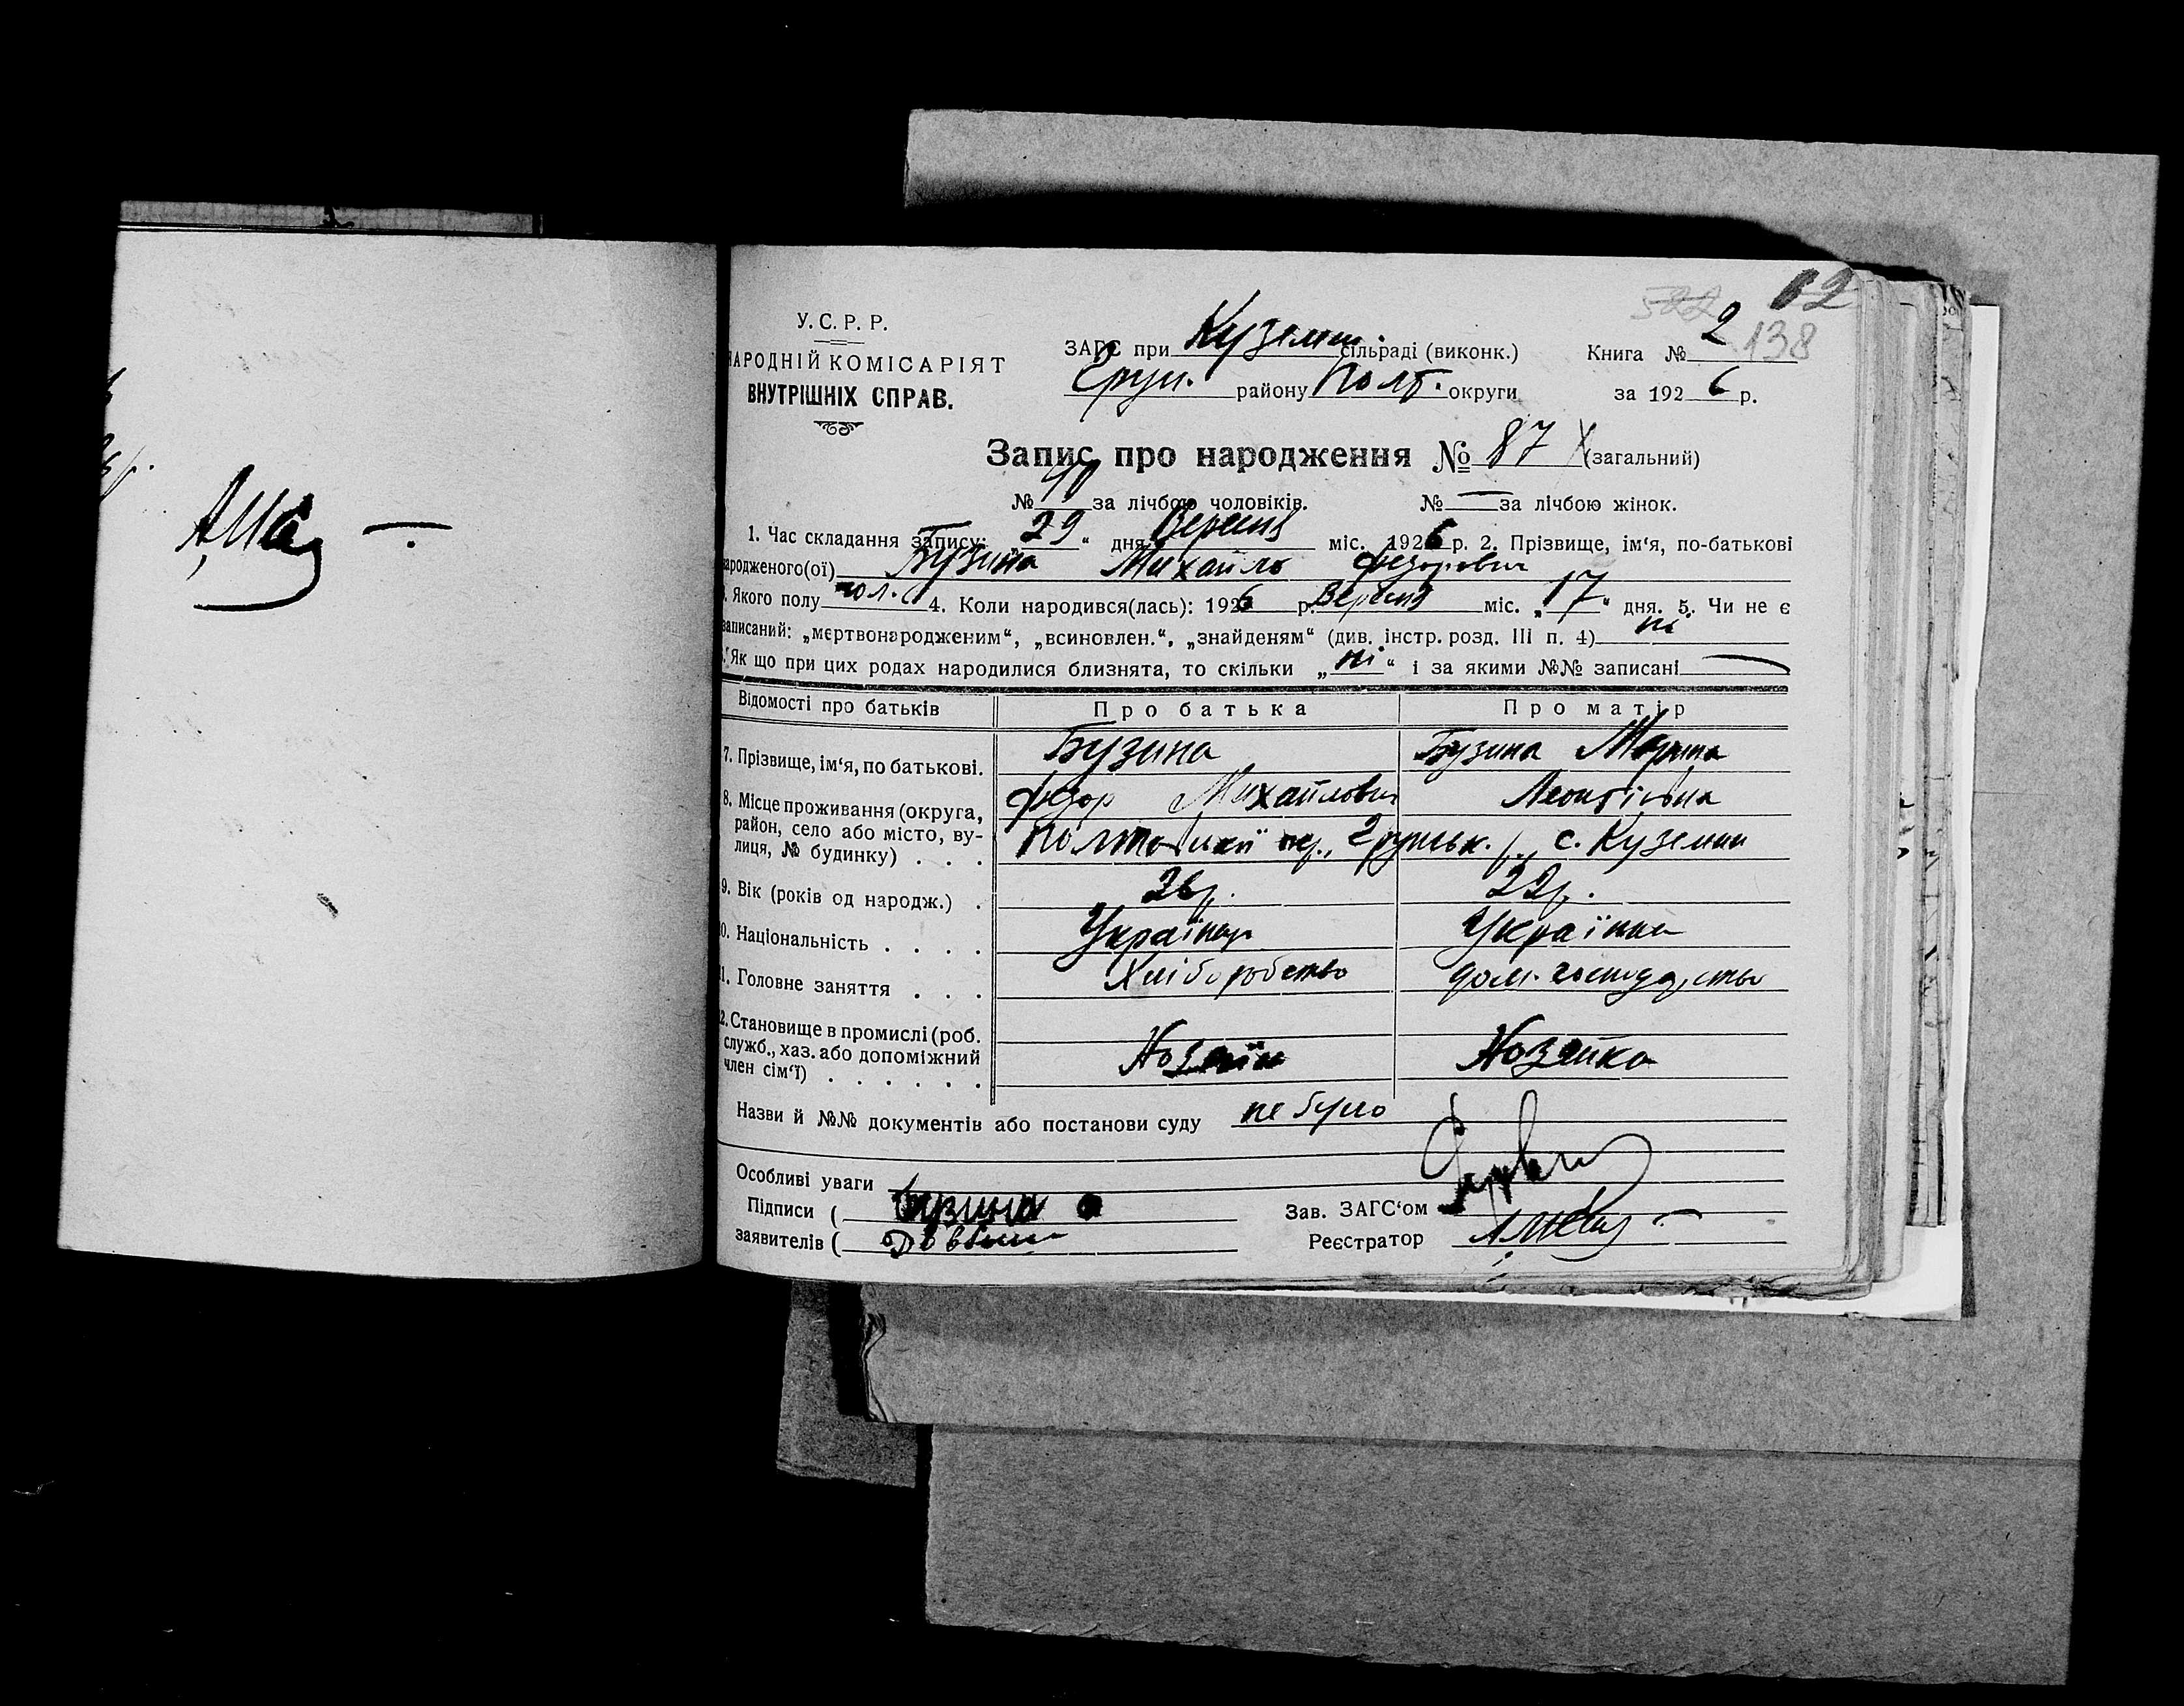 У. С. Р. Р.
НАРОДНІЙ КОМІСАРІЯТ
ВНУТРІШНІХ СПРАВ.
ЗАГС при Куземин. сільраді (виконк.)
Грун. району Полт. округи
12
522
138
Книга № 2
за 1926 р.
Запис про народження № 87 (загальний)
№ 40 за лічбою чоловіків. № — за лічбою жінок.
1. Час складання запису: 29 " дня Вересня міс. 1926 р. 2. Прізвище, ім'я, по-батькові
народженого(ої) Бузина Михайло Федорович
Якого полу чол. 4. Коли народився(лась): 1926 р. Вересня міс. „17" дня. 5. Чи не є
записаний: „мертвонародженим", „всиновлен.", „знайденям" (див. інстр. розд. III п. 4) ні
Як що при цих родах народилися близнята, то скільки „ні" і за якими №№ записані —
Відомості про батьків Про батька Про матір
7. Прізвище, ім'я, по батькові. Бузина Федор Михайлович Бузина Марина Леонтіївна
8. Місце проживання (округа,
район, село або місто, ву-
лиця, № будинку) . . . Полтавської окр., Грунськ. р., с. Куземин
9. Вік (років од народж.) . 26 р. 22 р.
10. Національність . . . . Українець Українка
11. Головне заняття . . . Хліборобство дом. господарство
12. Становище в промислі (роб.
служб., хаз. або допоміжний
член сім'ї) . . . . . . Хозяїн Хозяйка
Назви й №№ документів або постанови суду не було
Особливі уваги
Підписи ( Бузина
заявителів (
Зав. ЗАГС'ом
Реєстратор